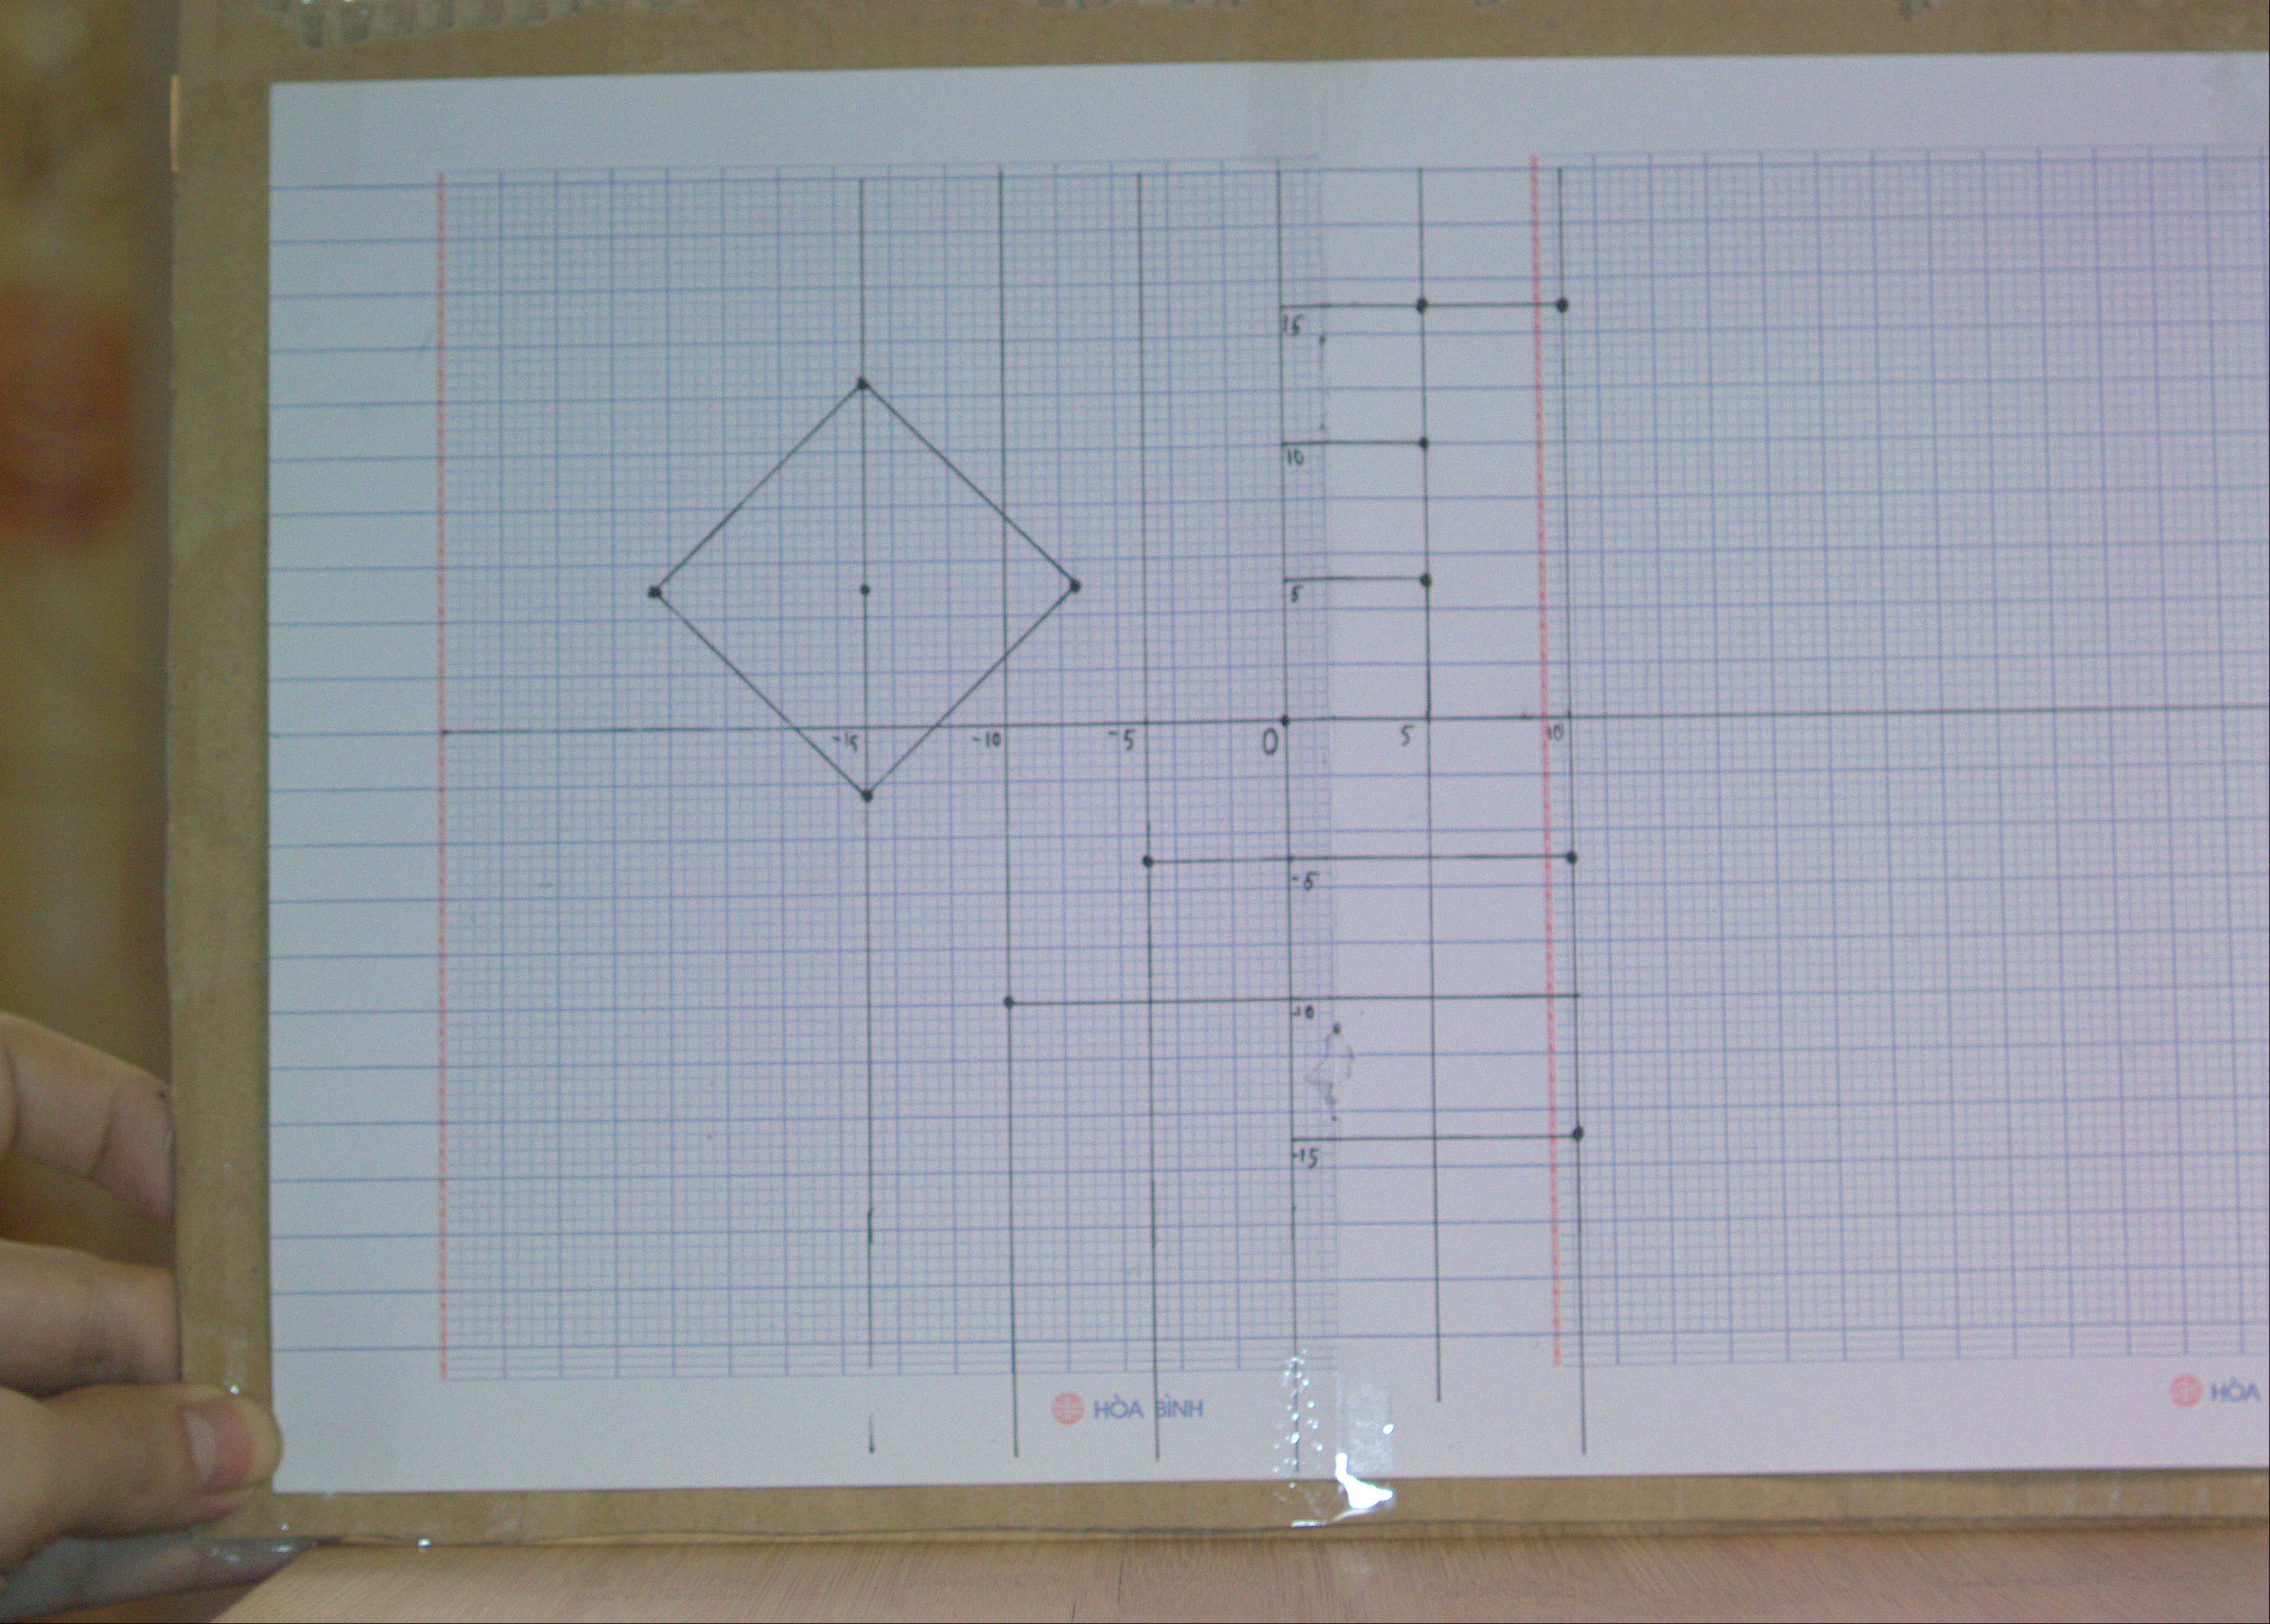 15
10
5
-15 -10 -5 0 5 10
-5
-10
-15
HÒA BÌNH
HÒA